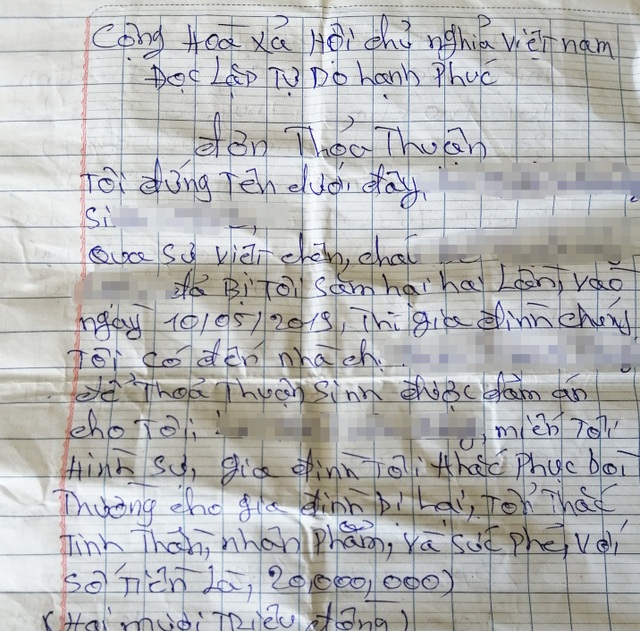 Cộng Hoà xả Hội chủ nghỉa việt nam
Đọc Lập Tự Do hạnh Phúc
đơn Thỏa Thuận
Tôi đứng Tên dưới đây,
Si
Qua sự việt chên, cháu
đả Bị Tôi Sâm hại hai Lần, vào
ngày 10/05/2019, Thì gia đình chúng
Tôi có đến nhà chị
để Thoả Thuận Sinh được đâm án
cho Tôi: , miển Tối
Hình Sự, gia đình Tôi khắc Phục bồi
Thường cho gia đình Bị hại, Tổn Thấc
Tinh Thần, nhân Phẩm, và Sức Phẻ, với
số Tiền Là, 20,000,000)
(Hai mươi Triệu đồng)